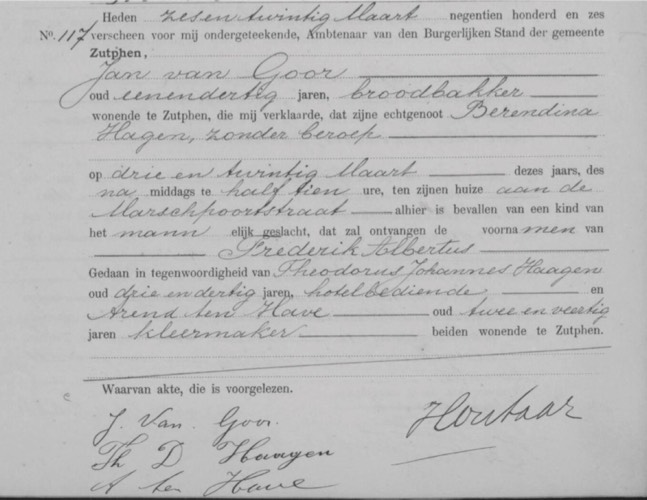 Heden zesentwintig Maart negentien honderd en zes
No. 117 verscheen voor mij ondergeteekende, Ambtenaar van den Burgerlijken Stand der gemeente
Zutphen,
Jan van Goor
oud eenendertig jaren, broodbakker
wonende te Zutphen, die mij verklaarde, dat zijne echtgenoot Berendina
Hagen, zonder beroep
op drie en twintig Maart dezes jaars, des
na middags te half tien ure, ten zijnen huize aan de
Marschpoortstraat alhier is bevallen van een kind van
het mann elijk geslacht, dat zal ontvangen de voorna men van
Frederik Albertus
Gedaan in tegenwoordigheid van Theodorus Johannes Haagen
oud drie en dertig jaren, hotelbediende en
Arend ten Have oud twee en veertig
jaren kleermaker beiden wonende te Zutphen.
Waarvan akte, die is voorgelezen.
J. Van Goor.
Th D Haagen
A ten Have